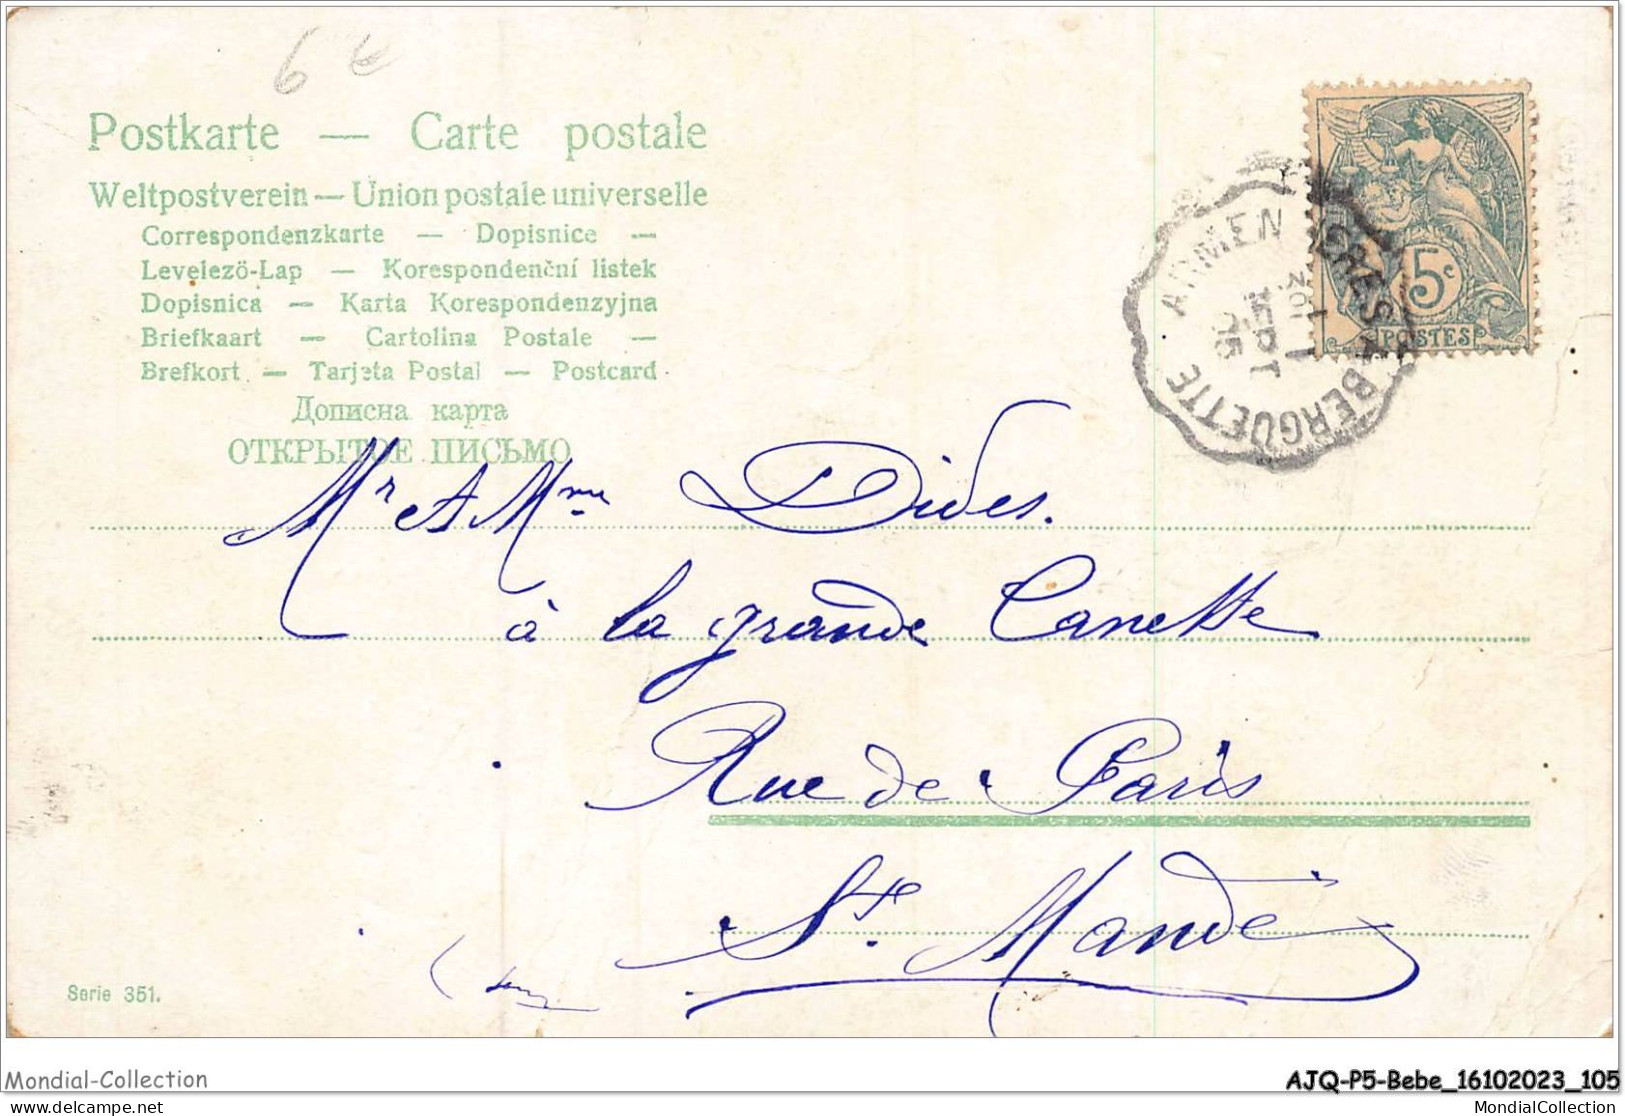 6 €
Postkarte — Carte postale
Weltpostverein — Union postale universelle
Correspondenzkarte — Dopisnice —
Levelező-Lap — Korespondenční listek
Dopisnica — Karta Korespondenzyjna
Briefkaart — Cartolina Postale —
Brefkort — Tarjeta Postal — Postcard
Дописна карта
ОТКРЫТОЕ ПИСЬМО
5c
POSTES
ARMENTIÈRES * BERGUETTE
05
Mr & Mme Dides.
à la grande Canette
Rue de Paris
St. Mandé
Serie 351.
Mondial-Collection
AJQ-P5-Bebe_16102023_105
delcampe.net
MondialCollection